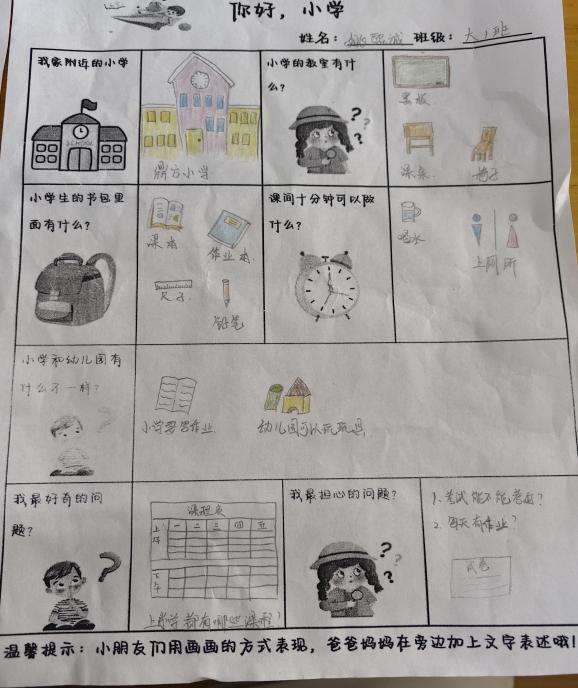 你好，小学
姓名： 班级：大1班
我家附近的小学
SCHOOL
鼎方小学
小学的教室有什
么？
黑板
课桌
椅子
小学生的书包里
面有什么？
课本
作业本
尺子
铅笔
课间十分钟可以做
什么？
喝水
上厕所
小学和幼儿园有
什么不一样？
小学要写作业
幼儿园可以玩玩具
我最好奇的问
题？
课程表
一 二 三 四 五
上午
下午
上小学都有哪些课程？
我最担心的问题？
1. 考试能不能考好？
2. 每天有作业？
试卷
温馨提示：小朋友们用画画的方式表现，爸爸妈妈在旁边加上文字表述哦！